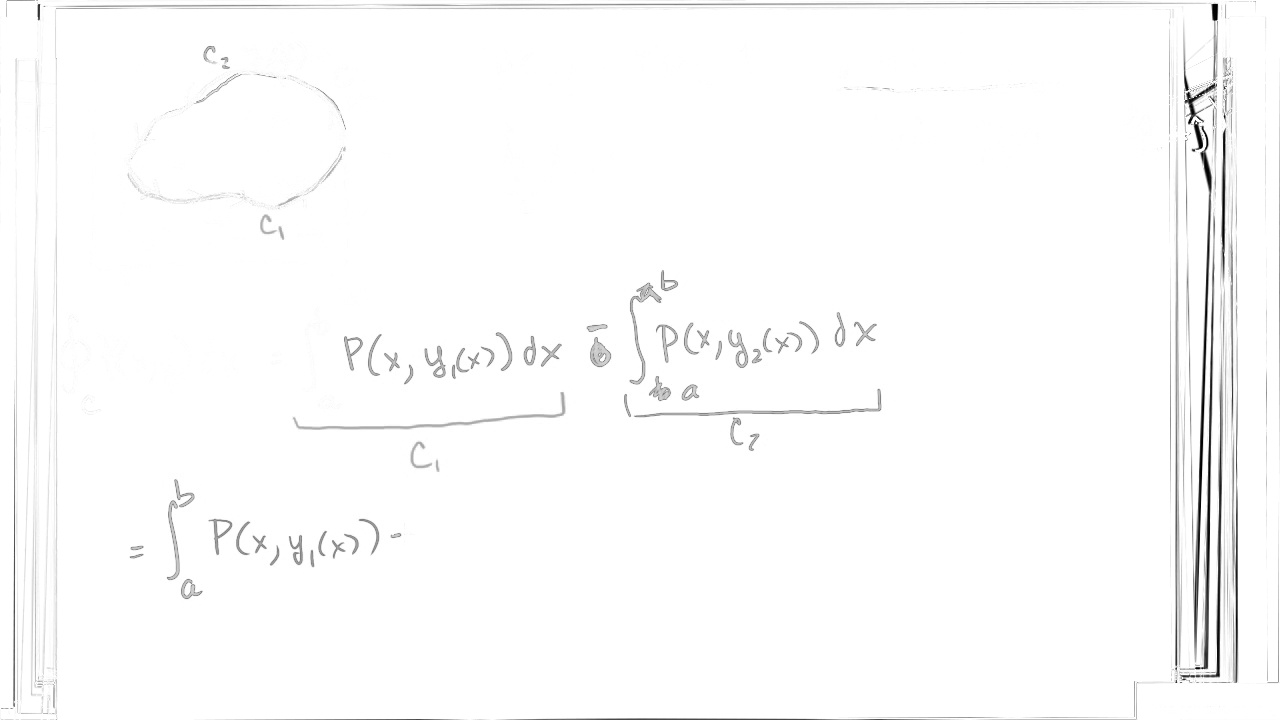 C₂
C₁
P(x, y₁(x)) dx - ∫ₐᵇ P(x, y₂(x)) dx
C₁ C₂
= ∫ₐᵇ P(x, y₁(x)) -